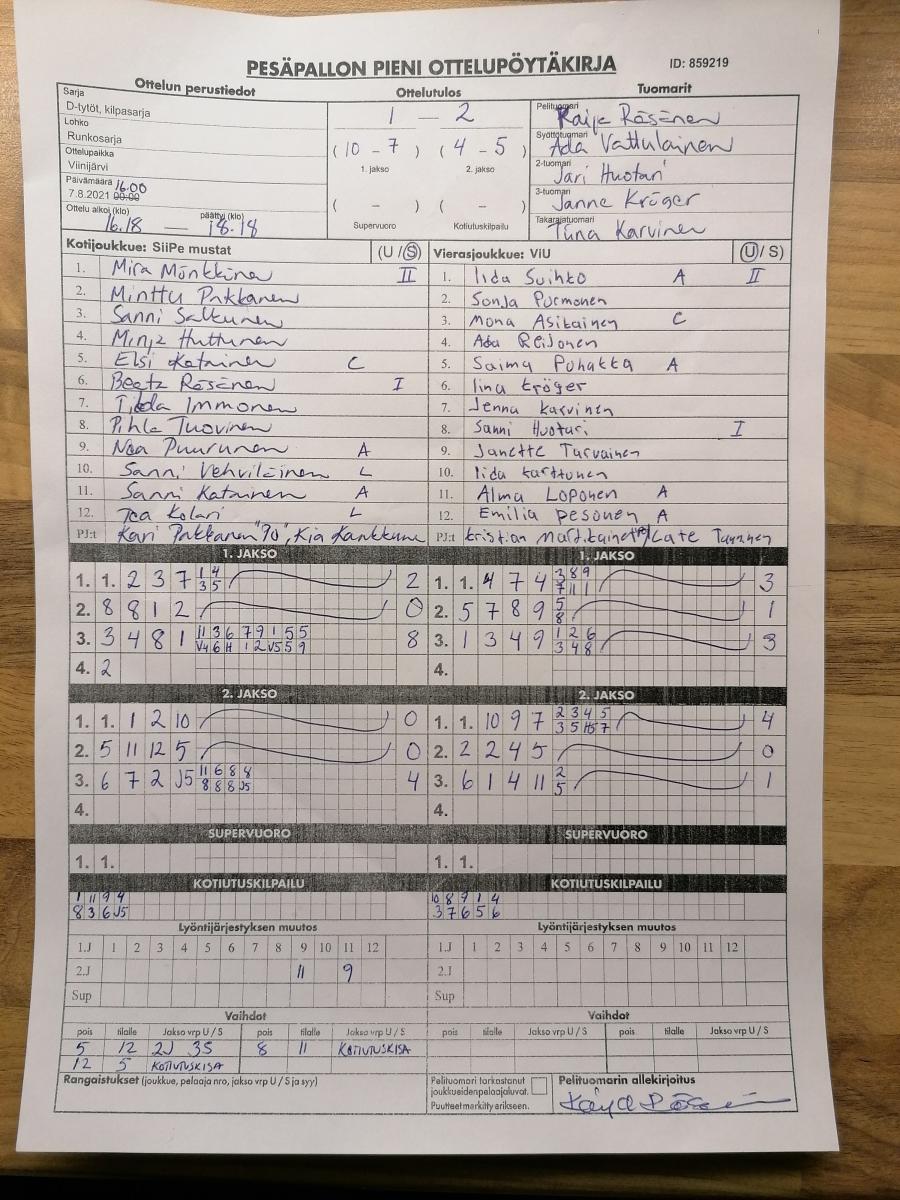 PESÄPALLON PIENI OTTELUPÖYTÄKIRJA ID: 859219
Ottelun perustiedot Ottelutulos Tuomarit
Sarja
D-tytöt, kilpasarja
Lohko
Runkosarja
Ottelupaikka
Viinijärvi
Päivämäärä 16.00
7.8.2021 00:00
Ottelu alkoi (klo) päättyi (klo)
16.18 — 18.18
1 — 2
( 10 - 7 ) ( 4 - 5 )
1. jakso 2. jakso
( - ) ( - )
Supervuoro Kotiutuskilpailu
Pelituomari
Räsänen
Syöttötuomari
Ada Vattulainen
2-tuomari
Jari Huotari
3-tuomari
Janne Kröger
Takarajatuomari
Tiina Karvinen
Kotijoukkue: SiiPe mustat (U / S)
1. Mira Mönkkönen II
2. Minttu Pakkanen
3. Sanni Salkunen
4. Minja Huttunen
5. Elsi Katainen C
6. Beata Räsänen I
7. Tilda Immonen
8. Pihla Tuovinen
9. Noa Puurunen A
10. Sanni Vehviläinen L
11. Sanni Katainen A
12. Tea Kolari L
PJ:t Kari Pakkanen "70", Kia Karkkunen
Vierasjoukkue: ViU (U / S)
1. Iida Suihko A II
2. Sonja Purmonen
3. Mona Asikainen C
4. Ada Reijonen
5. Saima Puhakka A
6. Iina Kröger
7. Jenna Karvinen
8. Sanni Huotari I
9. Janette Turvainen
10. Iida Karttunen
11. Alma Loponen A
12. Emilia Pesonen A
PJ:t Kristian Martikainen
1. JAKSO
1. 1. 2 3 7 1 4 2
3 5
2. 8 8 1 2 0
3. 3 4 8 1 11 3 6 7 9 1 5 5 8
V4 6 H 1 2 V5 5 9
4. 2
1. JAKSO
1. 1. 4 7 4 3 8 9 3
7 11 1
2. 5 7 8 9 5 1
8
3. 1 3 4 9 1 2 6 3
3 4 8
4.
2. JAKSO
1. 1. 1 2 10 0
2. 5 11 12 5 0
3. 6 7 2 J5 11 6 8 8 4
8 8 8 J5
4.
2. JAKSO
1. 1. 10 9 7 2 3 4 5 4
3 5 H5 7
2. 2 2 4 5 0
3. 6 1 4 11 2 1
5
4.
SUPERVUORO
1. 1.
SUPERVUORO
1. 1.
KOTIUTUSKILPAILU
1 11 9 4
8 3 6 J5
KOTIUTUSKILPAILU
10 8 9 1 4
3 7 6 5 6
Lyöntijärjestyksen muutos
1.J 1 2 3 4 5 6 7 8 9 10 11 12
2.J 11 9
Sup
Lyöntijärjestyksen muutos
1.J 1 2 3 4 5 6 7 8 9 10 11 12
2.J
Sup
Vaihdot
pois tilalle Jakso vrp U / S pois tilalle Jakso vrp U / S
5 12 2J 3S 8 11 KOTIUTUSKISA
12 5 KOTIUTUSKISA
Vaihdot
pois tilalle Jakso vrp U / S pois tilalle Jakso vrp U / S
Rangaistukset (joukkue, pelaaja nro, jakso vrp U / S ja syy)
Pelituomari tarkastanut
joukkueidenpelaajaluvat.
Puutteet merkitty erikseen.
Pelituomarin allekirjoitus